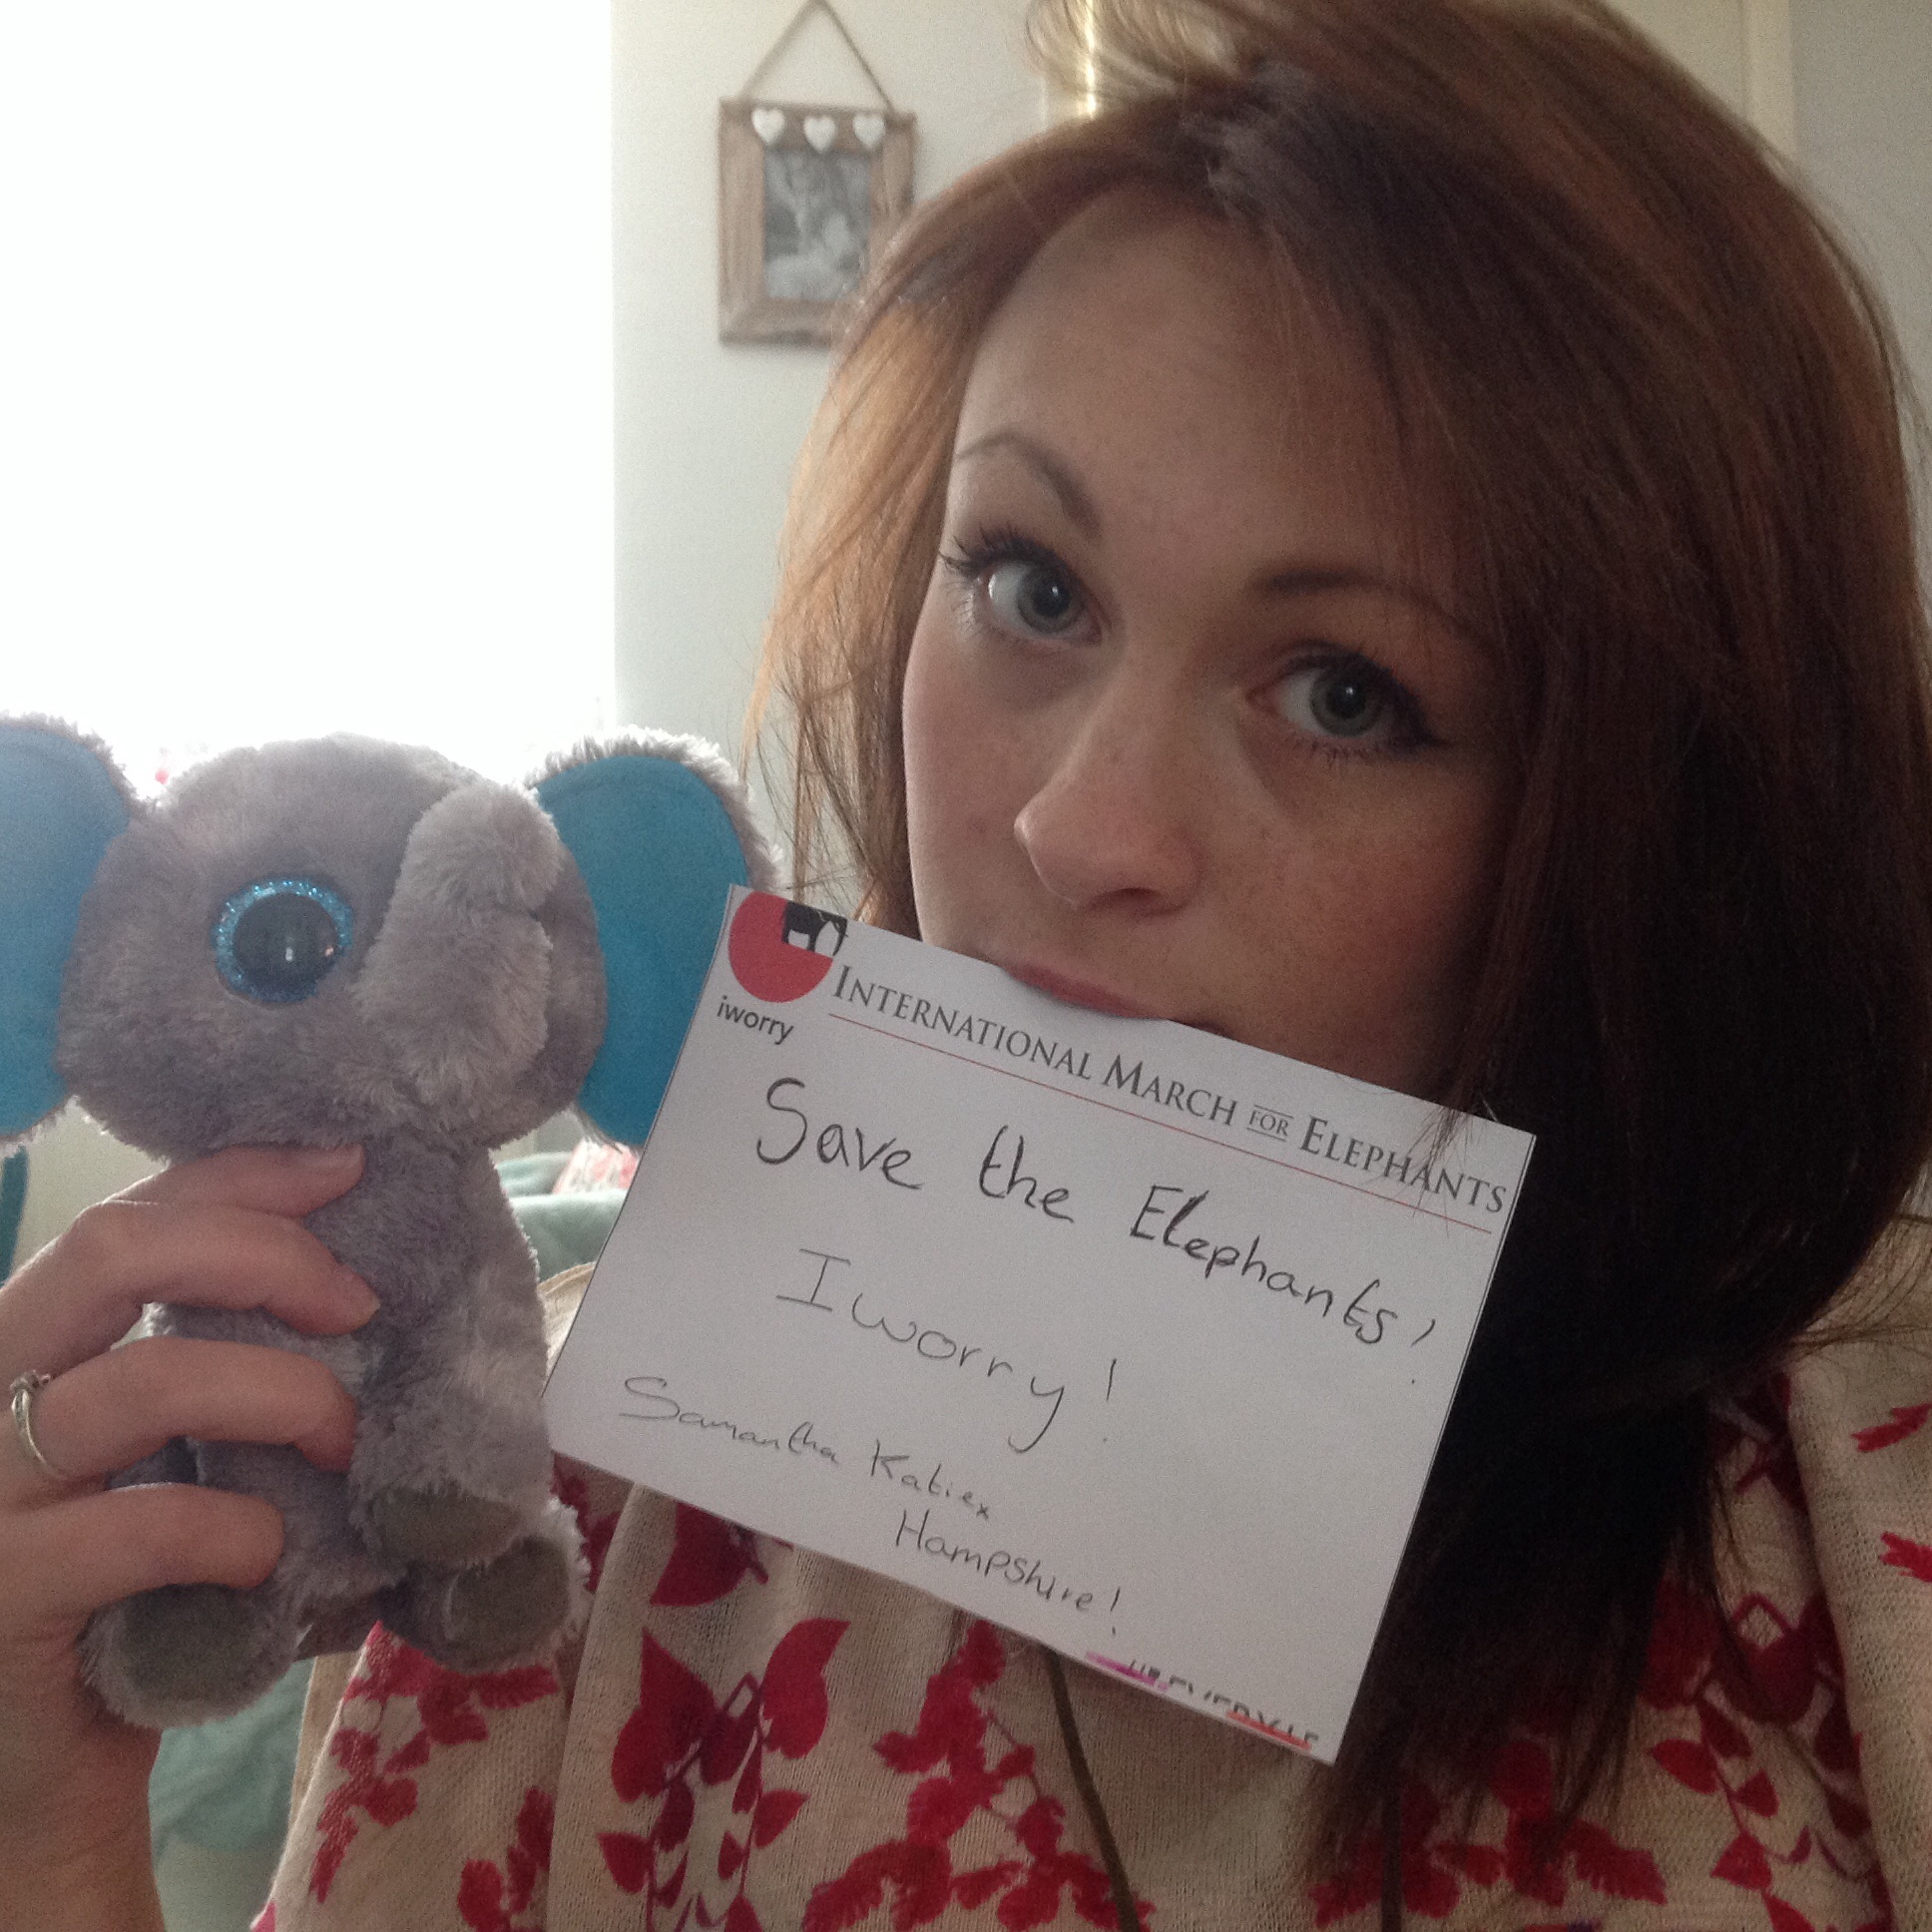 iworry
INTERNATIONAL MARCH FOR ELEPHANTS
Save the Elephants!
I worry!
Samantha Katiex
Hampshire!